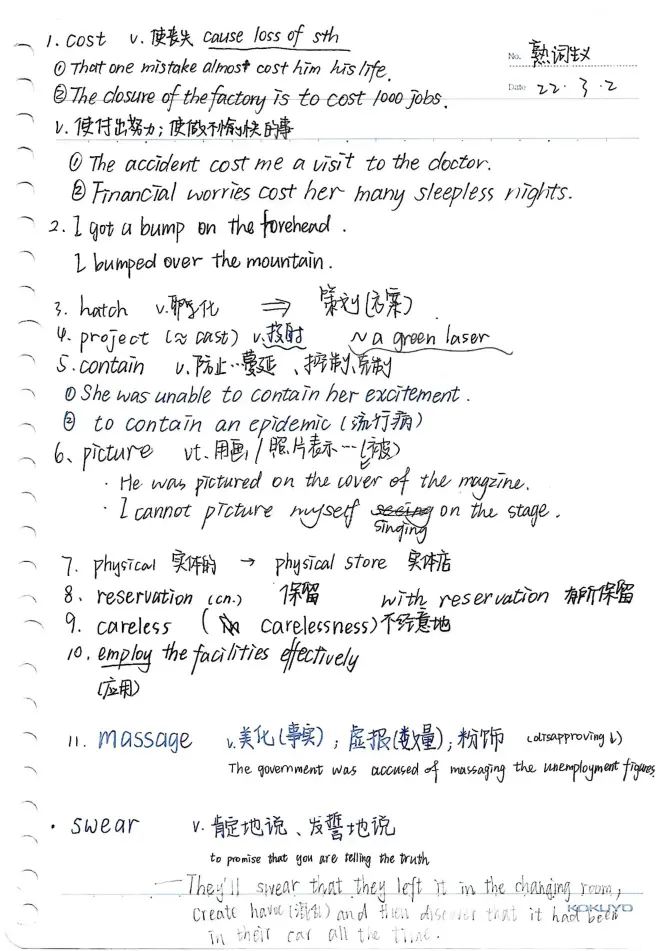 No. 熟词生义
Date 22.3.2
1. cost v. 使丧失 cause loss of sth
① That one mistake almost cost him his life.
② The closure of the factory is to cost 1000 jobs.
v. 使付出努力；使做不愉快的事
① The accident cost me a visit to the doctor.
② Financial worries cost her many sleepless nights.
2. I got a bump on the forehead.
I bumped over the mountain.
3. hatch v. 孵化 ⇒ 策划(方案)
4. project (≈ cast) v. 投射 ~ a green laser
5. contain v. 防止…蔓延、抑制、克制
① She was unable to contain her excitement.
② to contain an epidemic (流行病)
6、picture vt. 用画/照片表示…(被)
· He was pictured on the cover of the magzine.
· I cannot picture myself seeing on the stage.
singing
7. physical 实体的 → physical store 实体店
8. reservation (cn.) 保留 with reservation 有所保留
9. careless (n carelessness) 不经意地
10. employ the facilities effectively
(应用)
11. massage v. 美化(事实)；虚报(数量)；粉饰 (disapproving ↓)
The government was accused of massaging the unemployment figures.
· swear v. 肯定地说、发誓地说
to promise that you are telling the truth
— They'll swear that they left it in the changing room,
create havoc (混乱) and then discover that it had been
KOKUYO
in their car all the time.